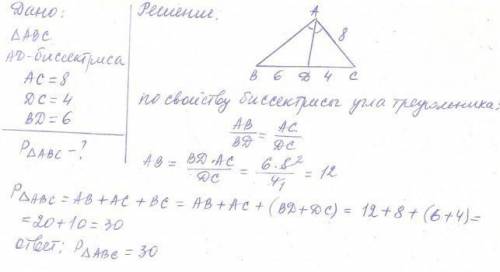 Дано:
△ABC
AD-биссектриса
AC = 8
DC = 4
BD = 6
P△ABC - ?
Решение:
A
8
B 6 D 4 C
по свойству биссектрисы угла треугольника:
AB/BD = AC/DC
AB = BD·AC/DC = 6·8²/4₁ = 12
P△ABC = AB + AC + BC = AB + AC + (BD + DC) = 12 + 8 + (6 + 4) =
= 20 + 10 = 30
ответ: P△ABC = 30